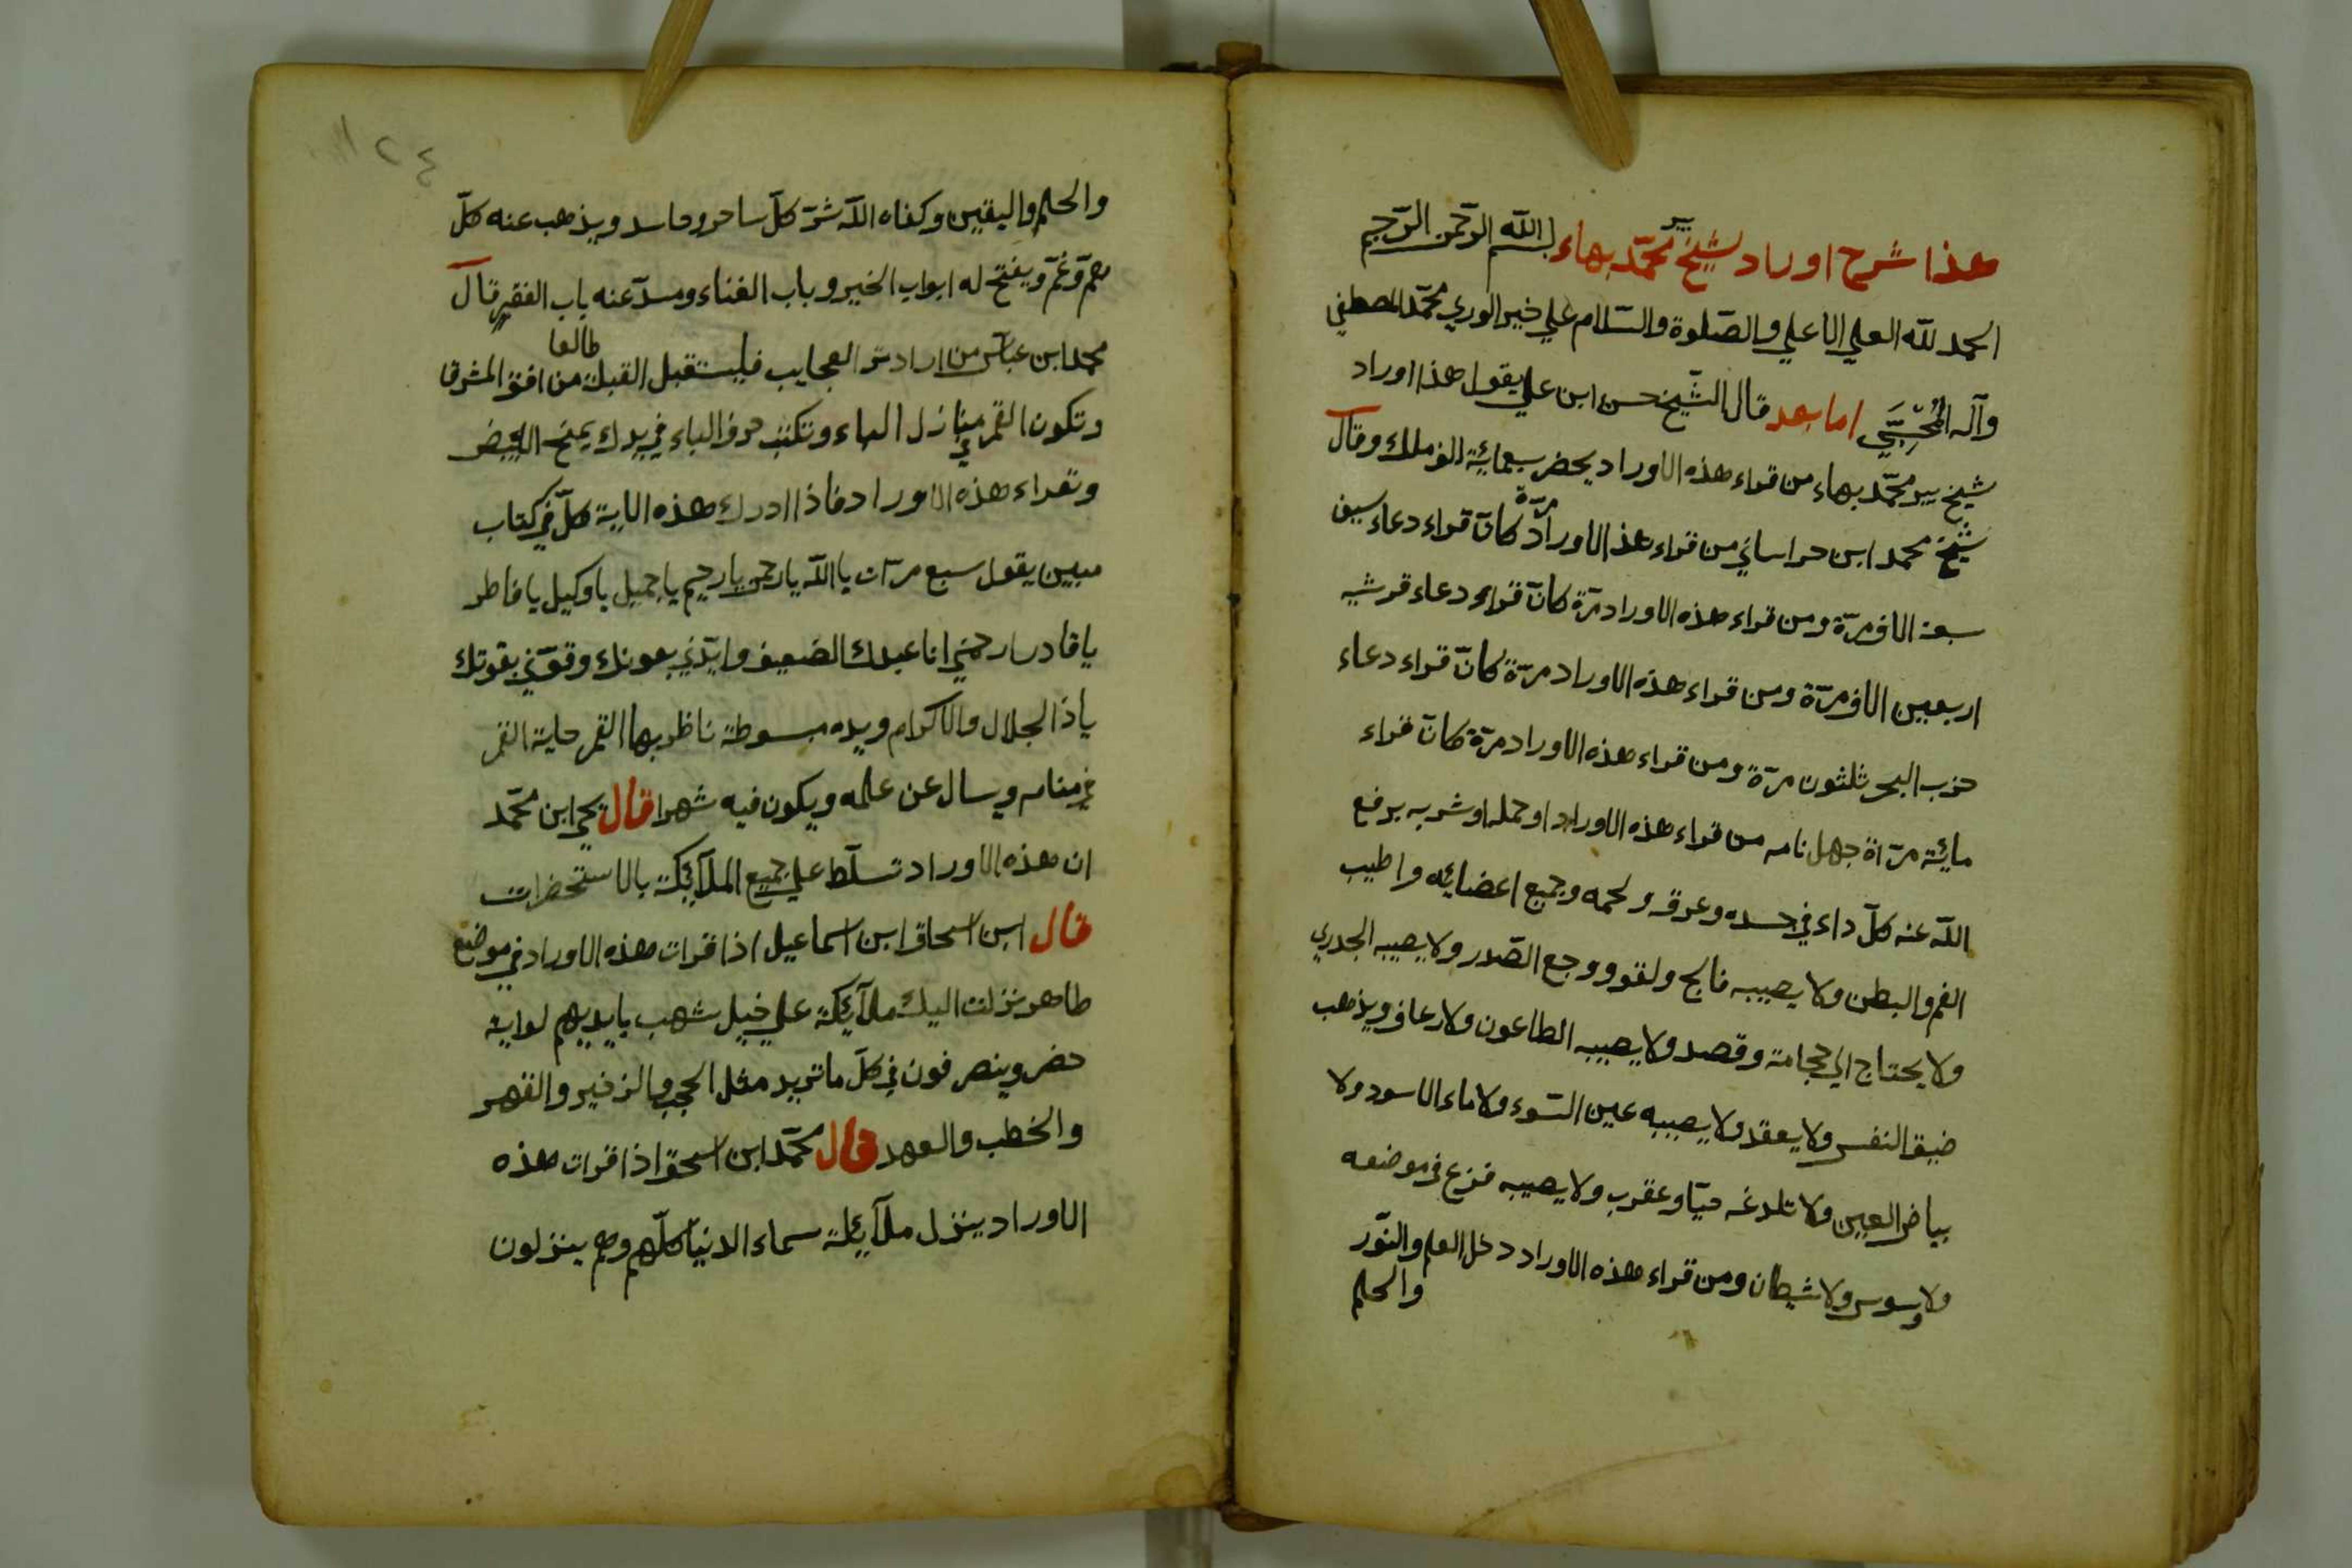 هذا شرح اوراد لشيخ پير محمّد بهاء بسم الله الرّحمن الرّحيم
الحمد للّه العلي الاعلي والصّلوة والسّلام علي خير الوري محمّد المصطفي
وآله المُجْتَبَي اما بعد قال الشّيخ حسن ابن علي يقول هذا اوراد
شيخ پير محمّد بهاء من قراء هذه الاوراد يحضر سبعمائية الف ملك وقال
شيخ محمد ابن حراساني من قراء هذ الاوراد مرّة كانّ قراء دعاء سيف
سبعة الاف مرّة ومن قراء هذه الاوراد مرّة كانّ قراء دعاء قرشيه
اربعين الاف مرّة ومن قراء هذه الاوراد مرّة كانّ قراء دعاء
حزب البحر ثلثون مرّة ومن قراء هذه الاوراد مرّة كانّ قراء
مائية مرّاة جهل نامه من قراء هذه الاوراد او حمله او شربه يرفع
اللّه عنه كلّ داء في جسده وعرقه ولحمه وجميع اعضائه واطيب
الفم والبطن ولا يصيبه فالج ولقوو وجع الصّدر ولا يصيبه الجدري
ولا يحتاج الي حجامة وقصد ولا يصيبه الطاعون ولا رعاف ويذهب
ضيق النفس ولا يعقد ولا يصيبه عين السّوء ولا ماء الاسود ولا
بياض العين ولا تلدغه حيّا وعقرب ولا يصيبه فزع في موضعه
ولا وسوس ولا شيطان ومن قراء هذه الاوراد دخل العلم والنّور
والحلم
١٢٤
والحلم واليقين وكفاه اللّه شرّ كلّ ساحر وحاسد ويذهب عنه كلّ
همّ وغمّ ويفتح له ابواب الخير وباب الغناء ومسدّ عنه باب الفقير قال
محمد ابن عباس من اراد تر العجايب فليستقبل القبلة من افق المشرق طالعا
وتكون القمر في منازل الهاء وتكتب حرف الباء في يدك يمنح البيض
وتقراء هذه الاوراد فاذا ادرك هذه الاية كلّ في كتاب
مبين يقول سبع مرّات يا اللّه يا رحمن يا رحيم يا جميل يا وكيل يا فاطر
يا قادر ارحمني انا عبدك الضعيف وايّدني بعونك وقوّني بقوتك
يا ذا الجلال والاكرام ويده مبسوطة ناظر بها القمر حاية القمر
في منامه ويسال عن علمه ويكون فيه شهرا قال يحي ابن محمّد
ان هذه الاوراد تسلّط علي جميع الملآئكة بالاستحضرات
قال ابن اسحاق ابن اسماعيل اذا قرات هذه الاوراد في موضع
طاهر نزلت اليك ملآئكة علي خيل شهب بايديهم لواية
خضر وينصرفون في كلّ ما تريد مثل الحجب والزفير والقهر
والخطب والعهد قال محمّد ابن اسحق اذا قرات هذه
الاوراد ينزل ملآئكة سماء الدنيا كلّهم وهم ينزلون